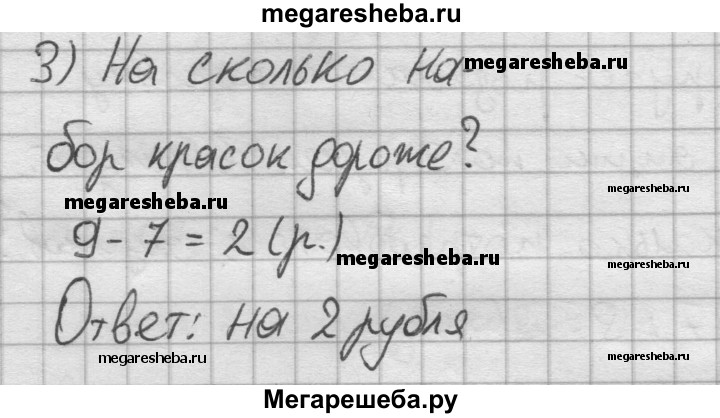 megaresheba.ru
3) На сколько на- megaresheba.ru
бор красок дороже?
megaresheba.ru
megaresheba.ru
9 - 7 = 2 (р.)
megaresheba.ru
Ответ: на 2 рубля
megaresheba.ru
megaresheba.ru
Мегарешеба.ру